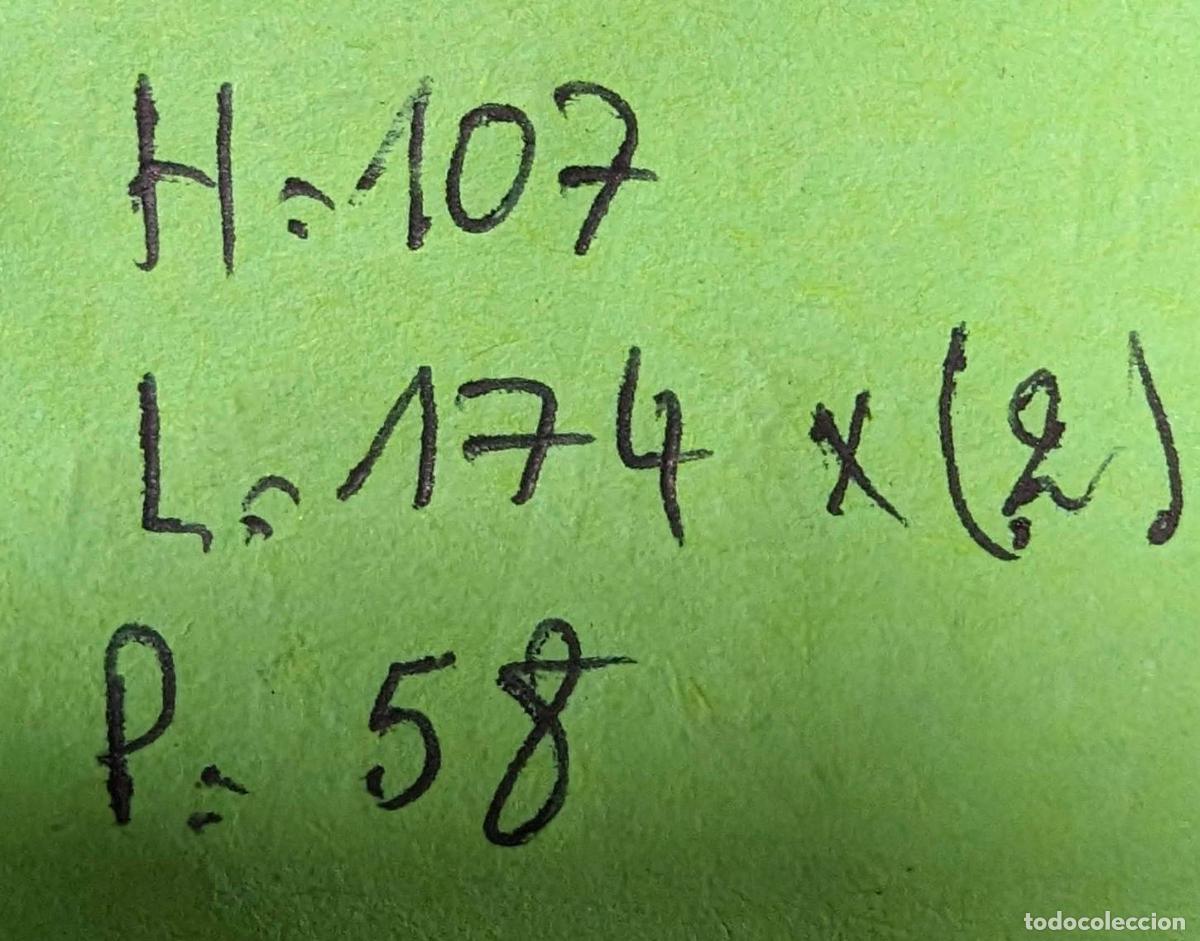 H=107
L=174 x (2)
P= 58
todocoleccion